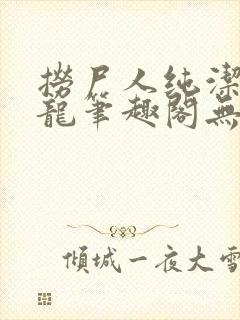 撈尸人純潔
龍筆趣閣無
傾城一夜大雪